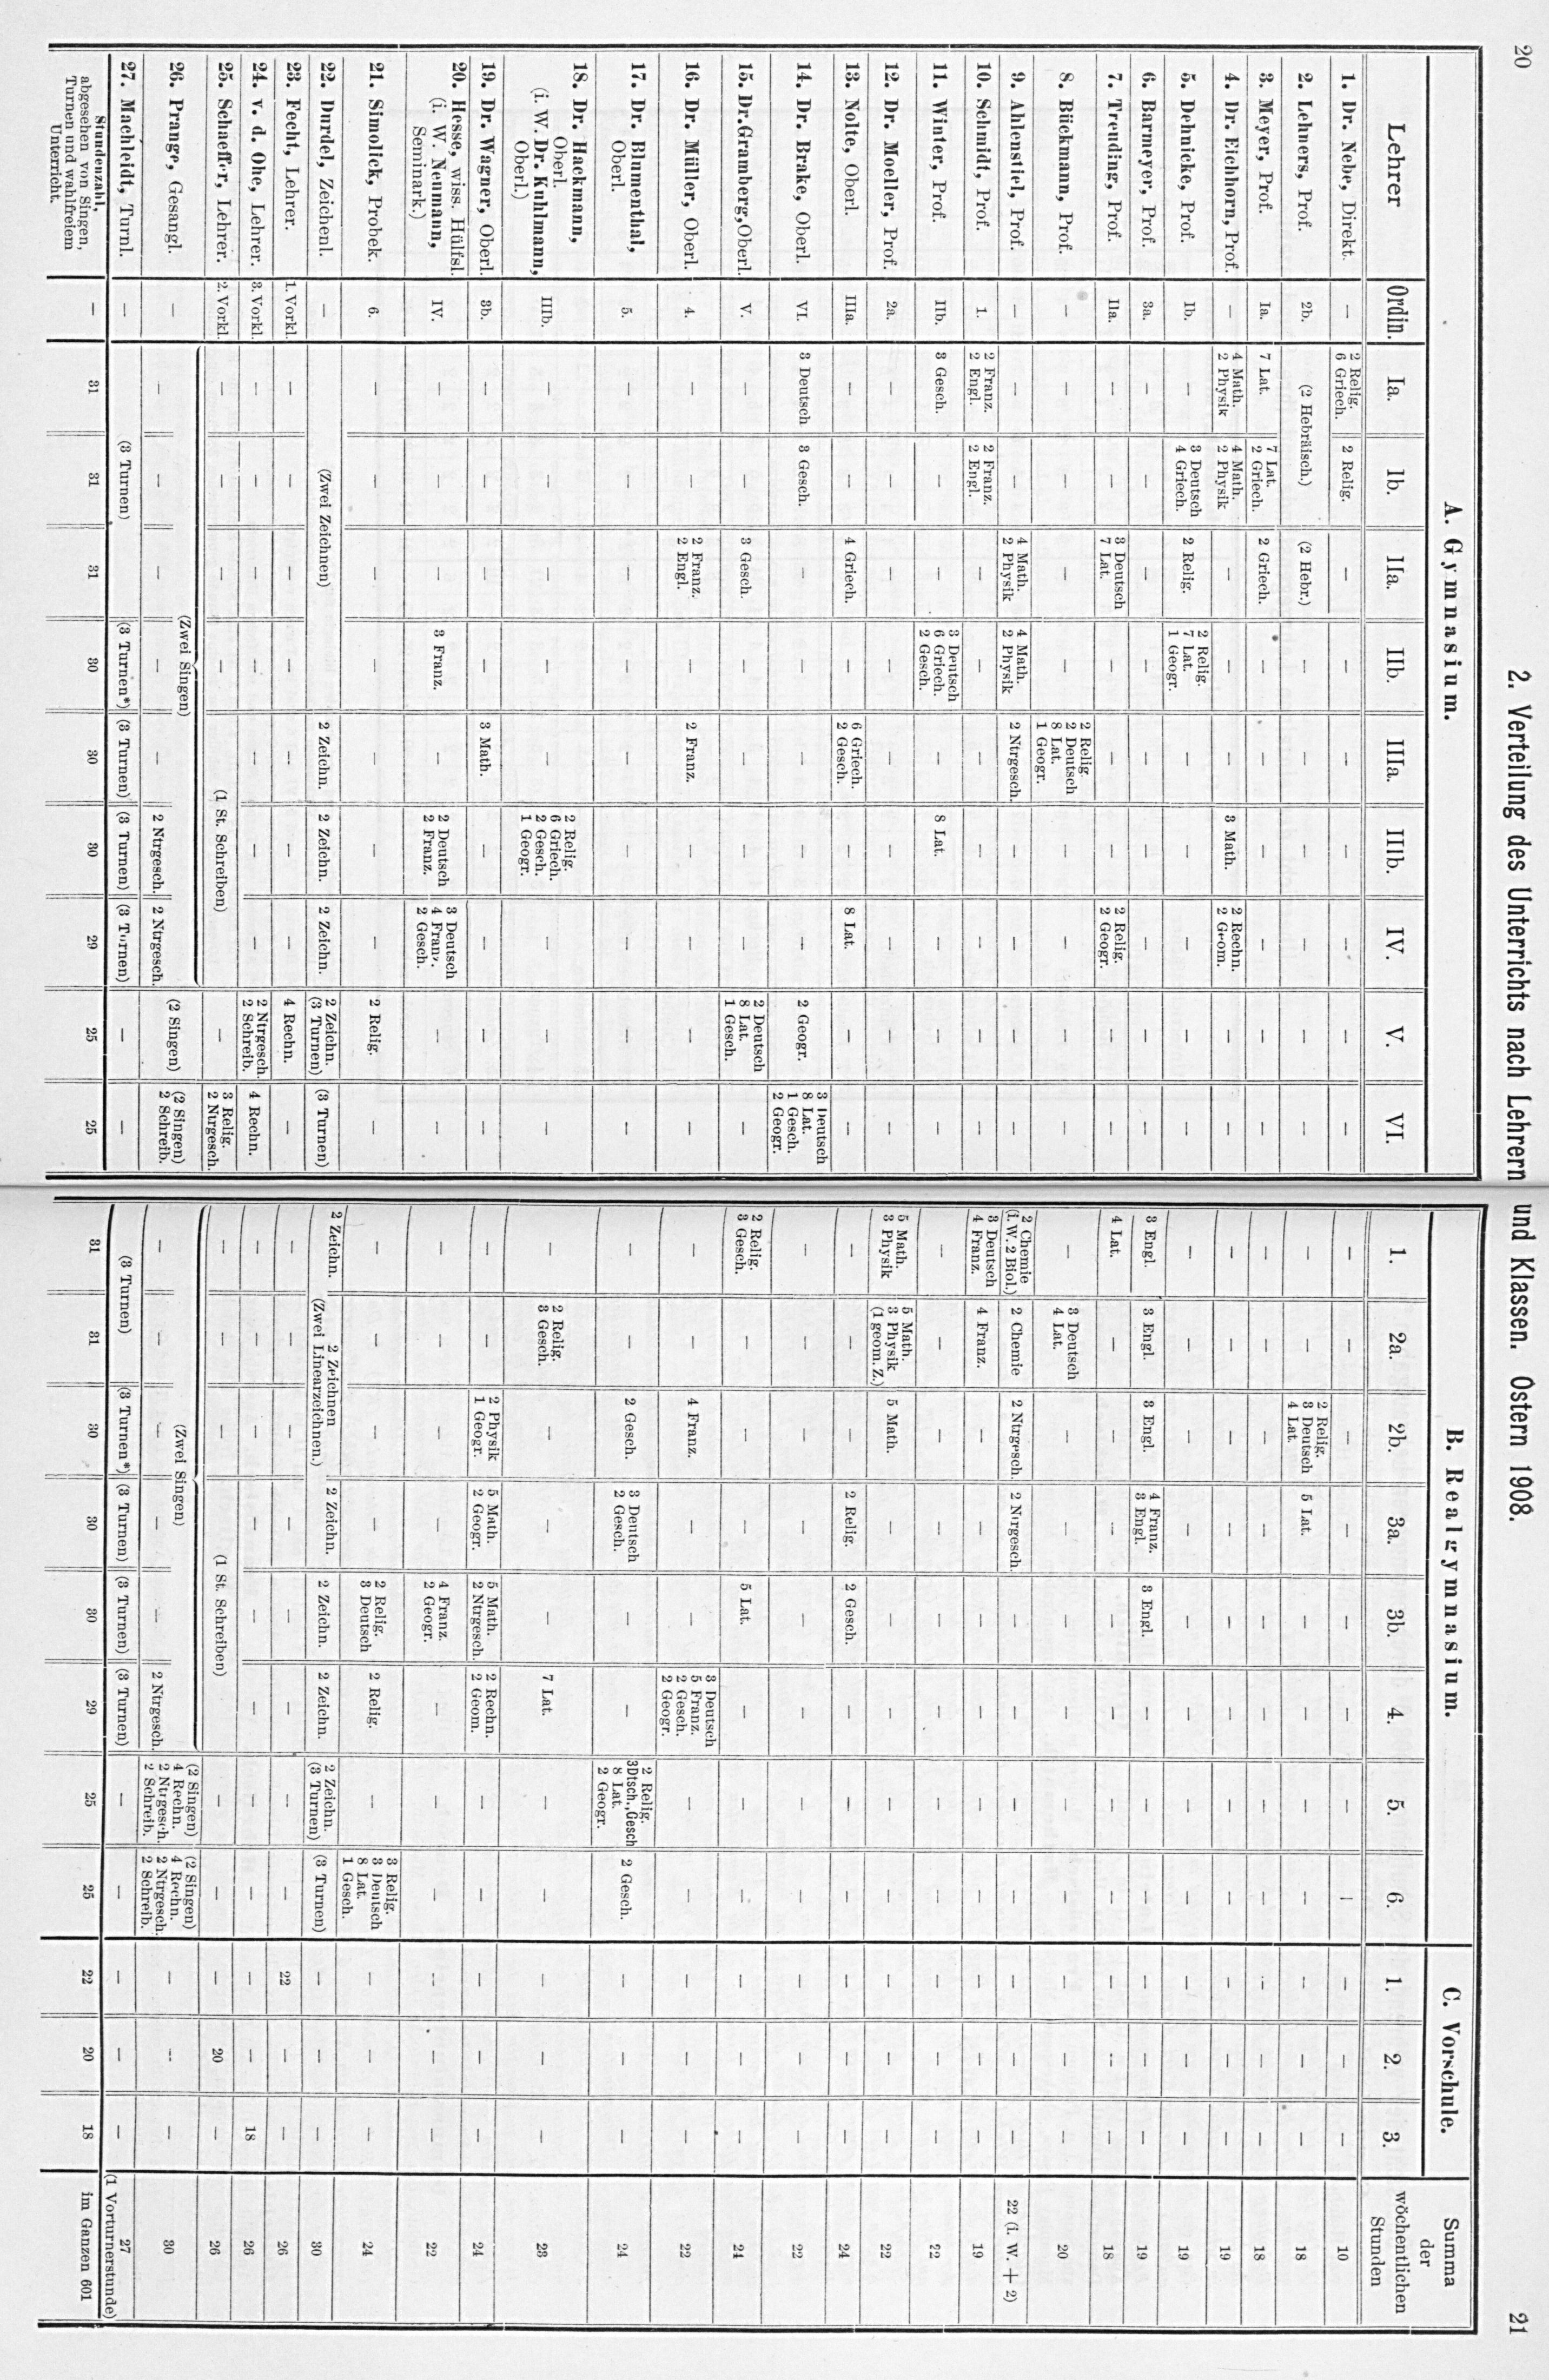 20
2. Verteilung des Unterrichts nach Lehrern und Klassen. Ostern 1908.
21
Lehrer
Ordin.
A. Gymnasium.
B. Realgymnasium.
C. Vorschule.
Summa
der
wöchentlichen
Stunden
Ia. Ib. IIa. IIb. IIIa. IIIb. IV. V. VI. 1. 2a. 2b. 3a. 3b. 4. 5. 6. 1. 2. 3.
1. Dr. Nebe, Direkt. — 2 Relig. 2 Relig. — — — — — — — — — — — — — — — — — — 10
6 Griech.
2. Lehners, Prof. 2b. (2 Hebräisch.) (2 Hebr.) — — — — — — — — 2 Relig. 5 Lat. — — — — — — — 18
3 Deutsch
4 Lat.
3. Meyer, Prof. Ia. 7 Lat. 7 Lat. 2 Griech. — — — — — — — — — — — — — — — — — 18
2 Griech.
4. Dr. Eichhorn, Prof. — 4 Math. 4 Math. — — — 3 Math. 2 Rechn. — — — — — — — — — — — — — 19
2 Physik 2 Physik 2 Geom.
5. Dehnicke, Prof. Ib. — 3 Deutsch 2 Relig. 2 Relig. — — — — — — — — — — — — — — — — 19
4 Griech. 7 Lat.
1 Geogr.
6. Barmeyer, Prof. 3a. — — — — — — — — — 3 Engl. 3 Engl. 3 Engl. 4 Franz. 3 Engl. — — — — — — 19
3 Engl.
7. Treuding, Prof. IIa. — — 3 Deutsch — — — 2 Relig. — — 4 Lat. — — — — — — — — — — 18
7 Lat. 2 Geogr.
8. Bückmann, Prof. — — — — — 2 Relig. — — — — — 3 Deutsch — — — — — — — — — 20
2 Deutsch 4 Lat.
8 Lat.
1 Geogr.
9. Ahlenstiel, Prof. — — — 4 Math. 4 Math. 2 Ntrgesch. — — — — 2 Chemie 2 Chemie 2 Ntrgesch. 2 Ntrgesch. — — — — — — — 22 (i. W. + 2)
2 Physik 2 Physik (i. W. 2 Biol.)
10. Schmidt, Prof. 1. 2 Franz. 2 Franz. — — — — — — — 3 Deutsch 4 Franz. — — — — — — — — — 19
2 Engl. 2 Engl. 4 Franz.
11. Winter, Prof. IIb. 3 Gesch. — — 3 Deutsch — 8 Lat. — — — — — — — — — — — — — — 22
6 Griech.
2 Gesch.
12. Dr. Moeller, Prof. 2a. — — — — — — — — — 5 Math. 5 Math. 5 Math. — — — — — — — — 22
3 Physik 3 Physik
(1 geom. Z.)
13. Nolte, Oberl. IIIa. — — 4 Griech. — 6 Griech. — 8 Lat. — — — — — 2 Relig. 2 Gesch. — — — — — — 24
2 Gesch.
14. Dr. Brake, Oberl. VI. 3 Deutsch 3 Gesch. — — — — — 2 Geogr. 3 Deutsch — — — — — — — — — — — 22
8 Lat.
1 Gesch.
2 Geogr.
15. Dr. Gramberg, Oberl. V. — — 3 Gesch. — — — — 2 Deutsch — 2 Relig. — — — 5 Lat. — — — — — — 24
8 Lat. 3 Gesch.
1 Gesch.
16. Dr. Müller, Oberl. 4. — — 2 Franz. — 2 Franz. — — — — — — 4 Franz. — — 3 Deutsch — — — — — 22
2 Engl. 5 Franz.
2 Gesch.
2 Geogr.
17. Dr. Blumenthal, 5. — — — — — — — — — — — 2 Gesch. 3 Deutsch — — 2 Relig. 2 Gesch. — — — 24
Oberl. 2 Gesch. 3Dtsch., Gesch
8 Lat.
2 Geogr.
18. Dr. Hackmann, IIIb. — — — — — 2 Relig. — — — — 2 Relig. — — — 7 Lat. — — — — — 23
Oberl. 6 Griech. 3 Gesch.
(i. W. Dr. Kuhlmann, 2 Gesch.
Oberl.) 1 Geogr.
19. Dr. Wagner, Oberl. 3b. — — — — 3 Math. — — — — — — 2 Physik 5 Math. 5 Math. 2 Rechn. — — — — — 24
1 Geogr. 2 Geogr. 2 Ntrgesch. 2 Geom.
20. Hesse, wiss. Hülfsl. IV. — — — 3 Franz. — 2 Deutsch 3 Deutsch — — — — — — 4 Franz. — — — — — — 22
(i. W. Neumann, 2 Franz. 4 Franz. 2 Geogr.
Seminark.) 2 Gesch.
21. Simolick, Probek. 6. — — — — — — — 2 Relig. — — — — — 2 Relig. 2 Relig. — 3 Relig. — — — 24
3 Deutsch 3 Deutsch
8 Lat.
1 Gesch.
22. Durdel, Zeichenl. — (Zwei Zeichnen) 2 Zeichn. 2 Zeichn. 2 Zeichn. 2 Zeichn. (3 Turnen) 2 Zeichn. 2 Zeichnen 2 Zeichn. 2 Zeichn. 2 Zeichn. 2 Zeichn. (3 Turnen) — — — 30
(3 Turnen) (Zwei Linearzeichnen.) (3 Turnen)
23. Fecht, Lehrer. 1. Vorkl. — — — — — — — 4 Rechn. — — — — — — — — — 22 — — 26
24. v. d. Ohe, Lehrer. 3. Vorkl. — — — — — — — 2 Ntrgesch. 4 Rechn. — — — — — — — — — — 18 26
2 Schreib.
25. Schaeffer, Lehrer. 2. Vorkl. — — — — (1 St. Schreiben) — 3 Relig. — — — (1 St. Schreiben) — — — 20 — 26
2 Ntrgesch.
26. Prange, Gesangl. — (Zwei Singen) (2 Singen) (2 Singen) (Zwei Singen) (2 Singen) (2 Singen) — — — 30
— — — — — 2 Ntrgesch. 2 Ntrgesch. 2 Schreib. — — — — — 2 Ntrgesch. 4 Rechn. 4 Rechn.
2 Ntrgesch. 2 Ntrgesch.
2 Schreib. 2 Schreib.
27. Machleidt, Turnl. — (3 Turnen) (3 Turnen*) (3 Turnen) (3 Turnen) (3 Turnen) — — (3 Turnen) (3 Turnen*) (3 Turnen) (3 Turnen) (3 Turnen) — — — — — 27
(1 Vorturnerstunde)
Stundenzahl, — 31 31 31 30 30 30 29 25 25 31 31 30 30 30 29 25 25 22 20 18 im Ganzen 601
abgesehen von Singen,
Turnen und wahlfreiem
Unterricht.